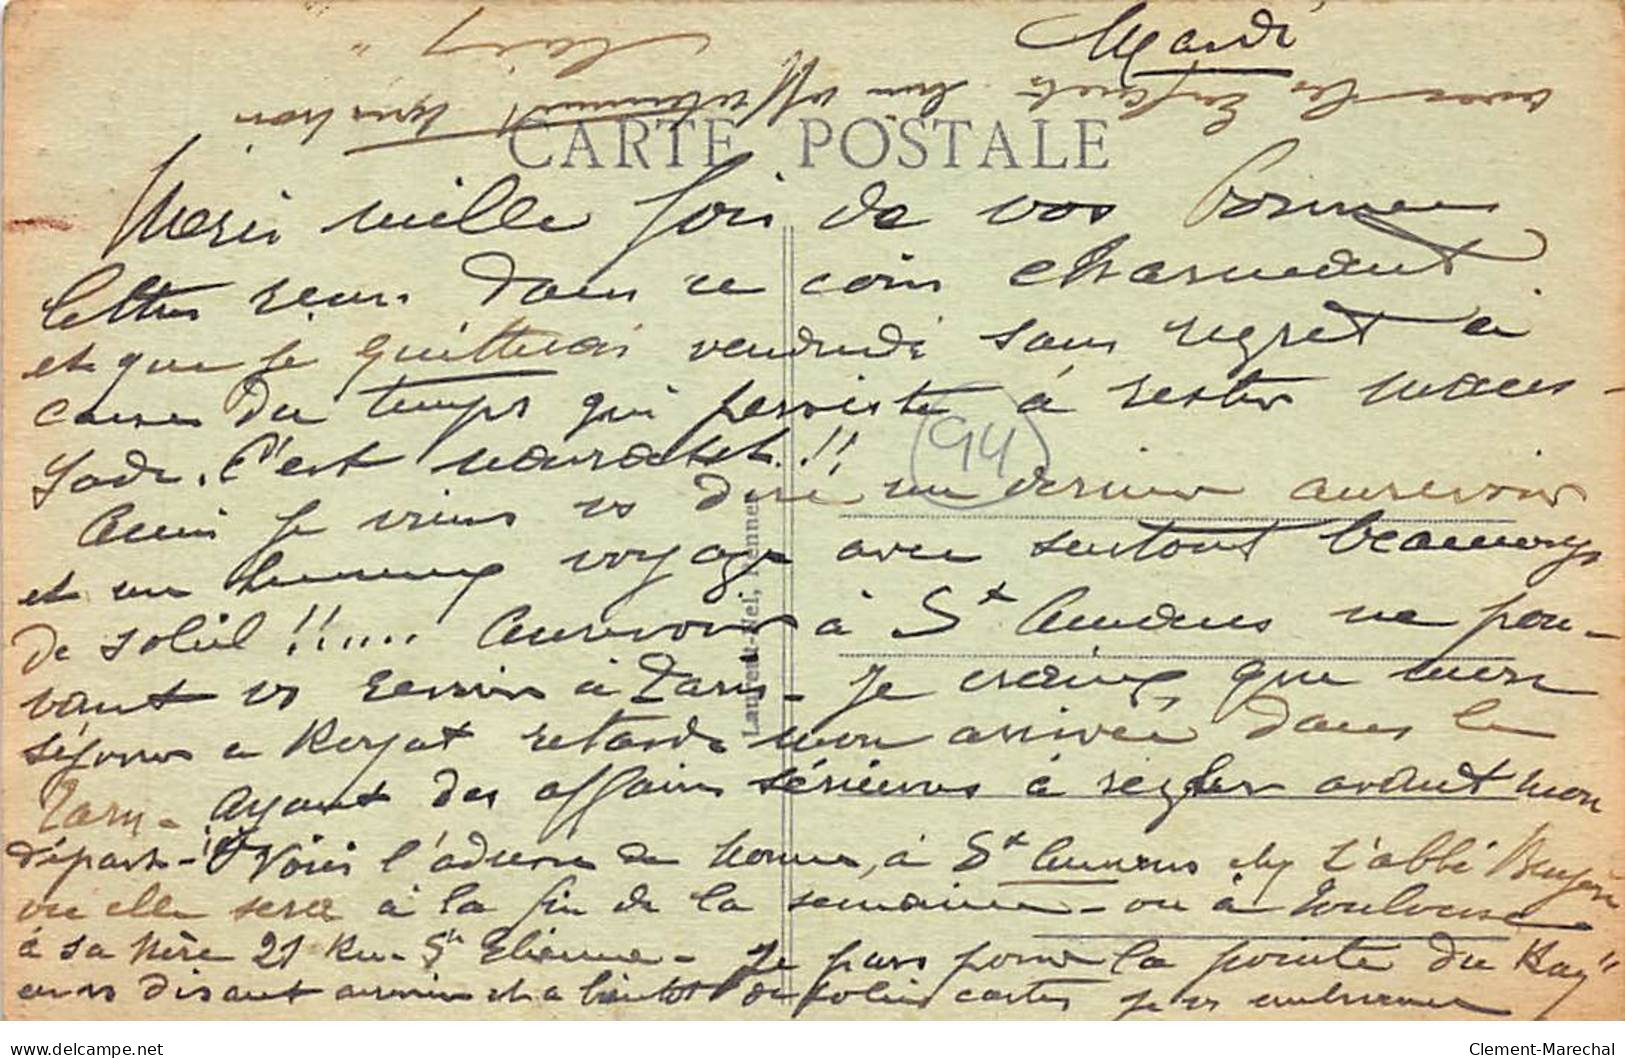 Mardi
CARTE POSTALE
Merci mille fois de vos bonnes
lettres dans ce coin charmant
et que je quitterai vendredi sans regret à
cause du temps qui persiste à rester maus-
sade. C'est navrant !!
94
Aussi je viens vs dire un dernier aurevoir
et un voyage avec surtout beaucoup
de soleil !!..... Aurevoir à St Amans ne pou-
vant vs revoir à Paris - Je crains que mon
séjour a Royat retarde mon arrivée dans le
Tarn - ayant des affaires sérieuses à régler avant mon
départ - Voici l'adresse de à St Amans chez l'abbé
où elle sera à la fin de la semaine - ou à Toulouse
à sa Mère 21 Rue St Etienne - Je pars pour la pointe du Raz
en vs disant aurevoir et a bientôt de jolies cartes je vs embrasse
avec les Enfants bien affectueusement
Laurent-Nel, Rennes
Clement-Marechal
delcampe.net